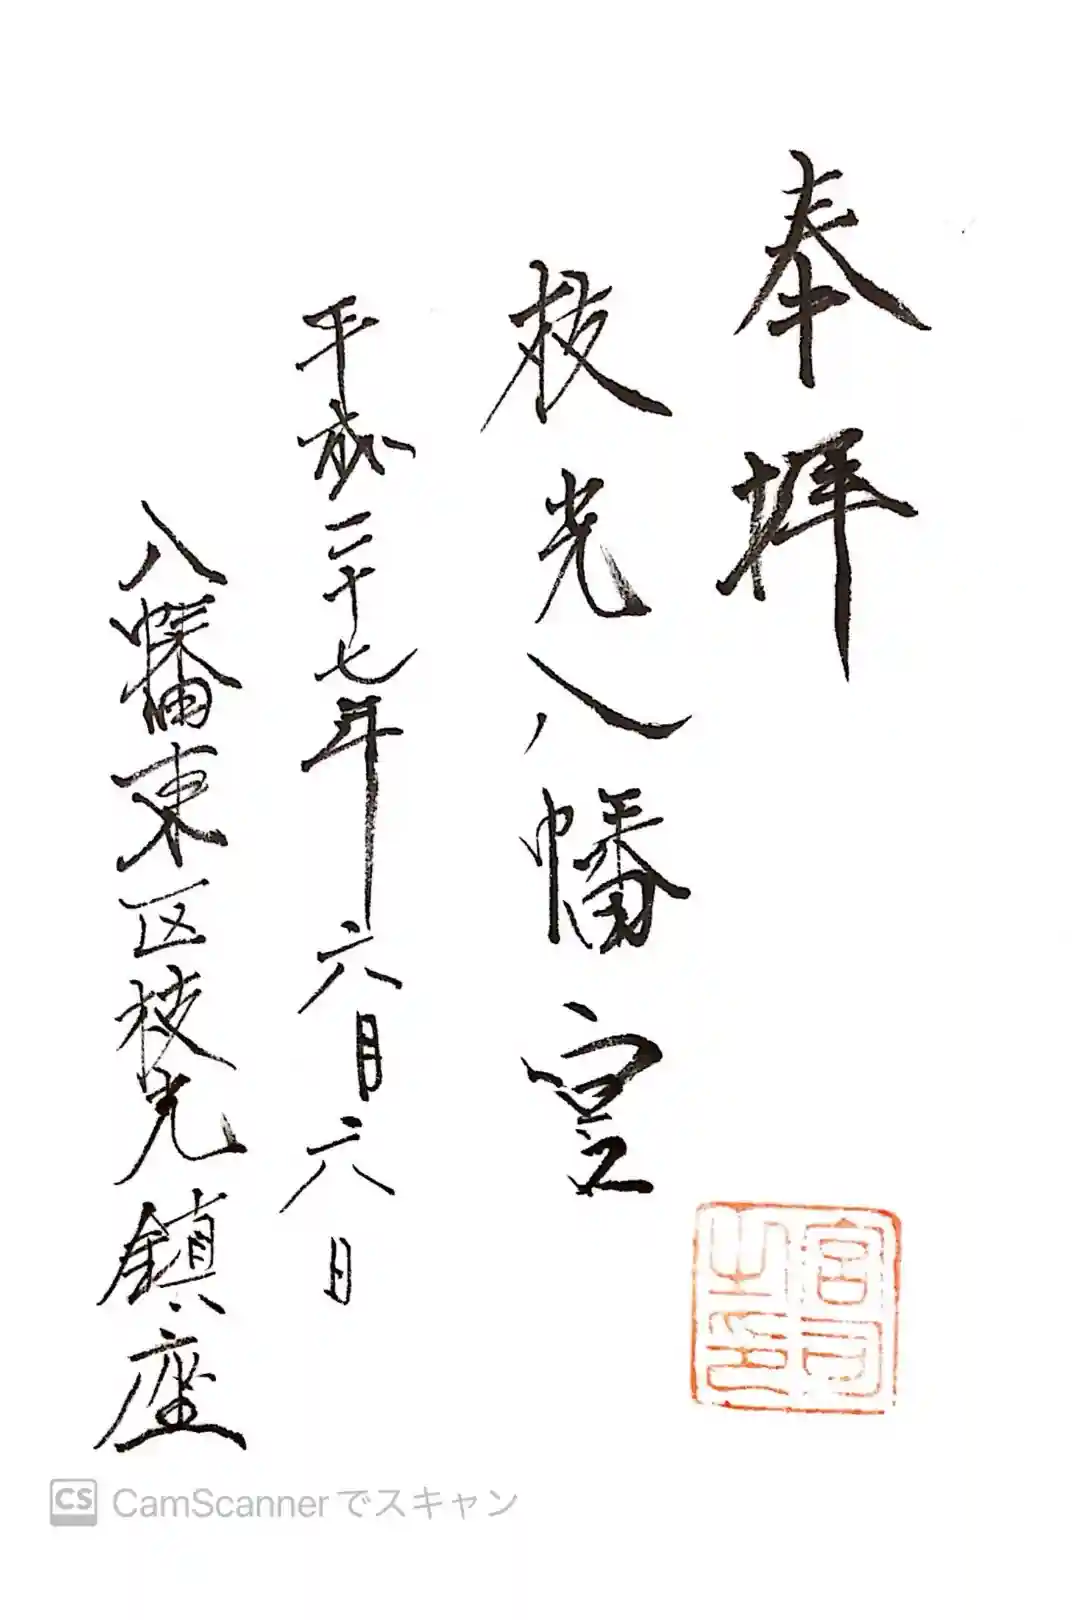 奉拝
枝光八幡宮
平成二十七年六月六日
八幡東区枝光鎮座
宮司之印
CS CamScannerでスキャン